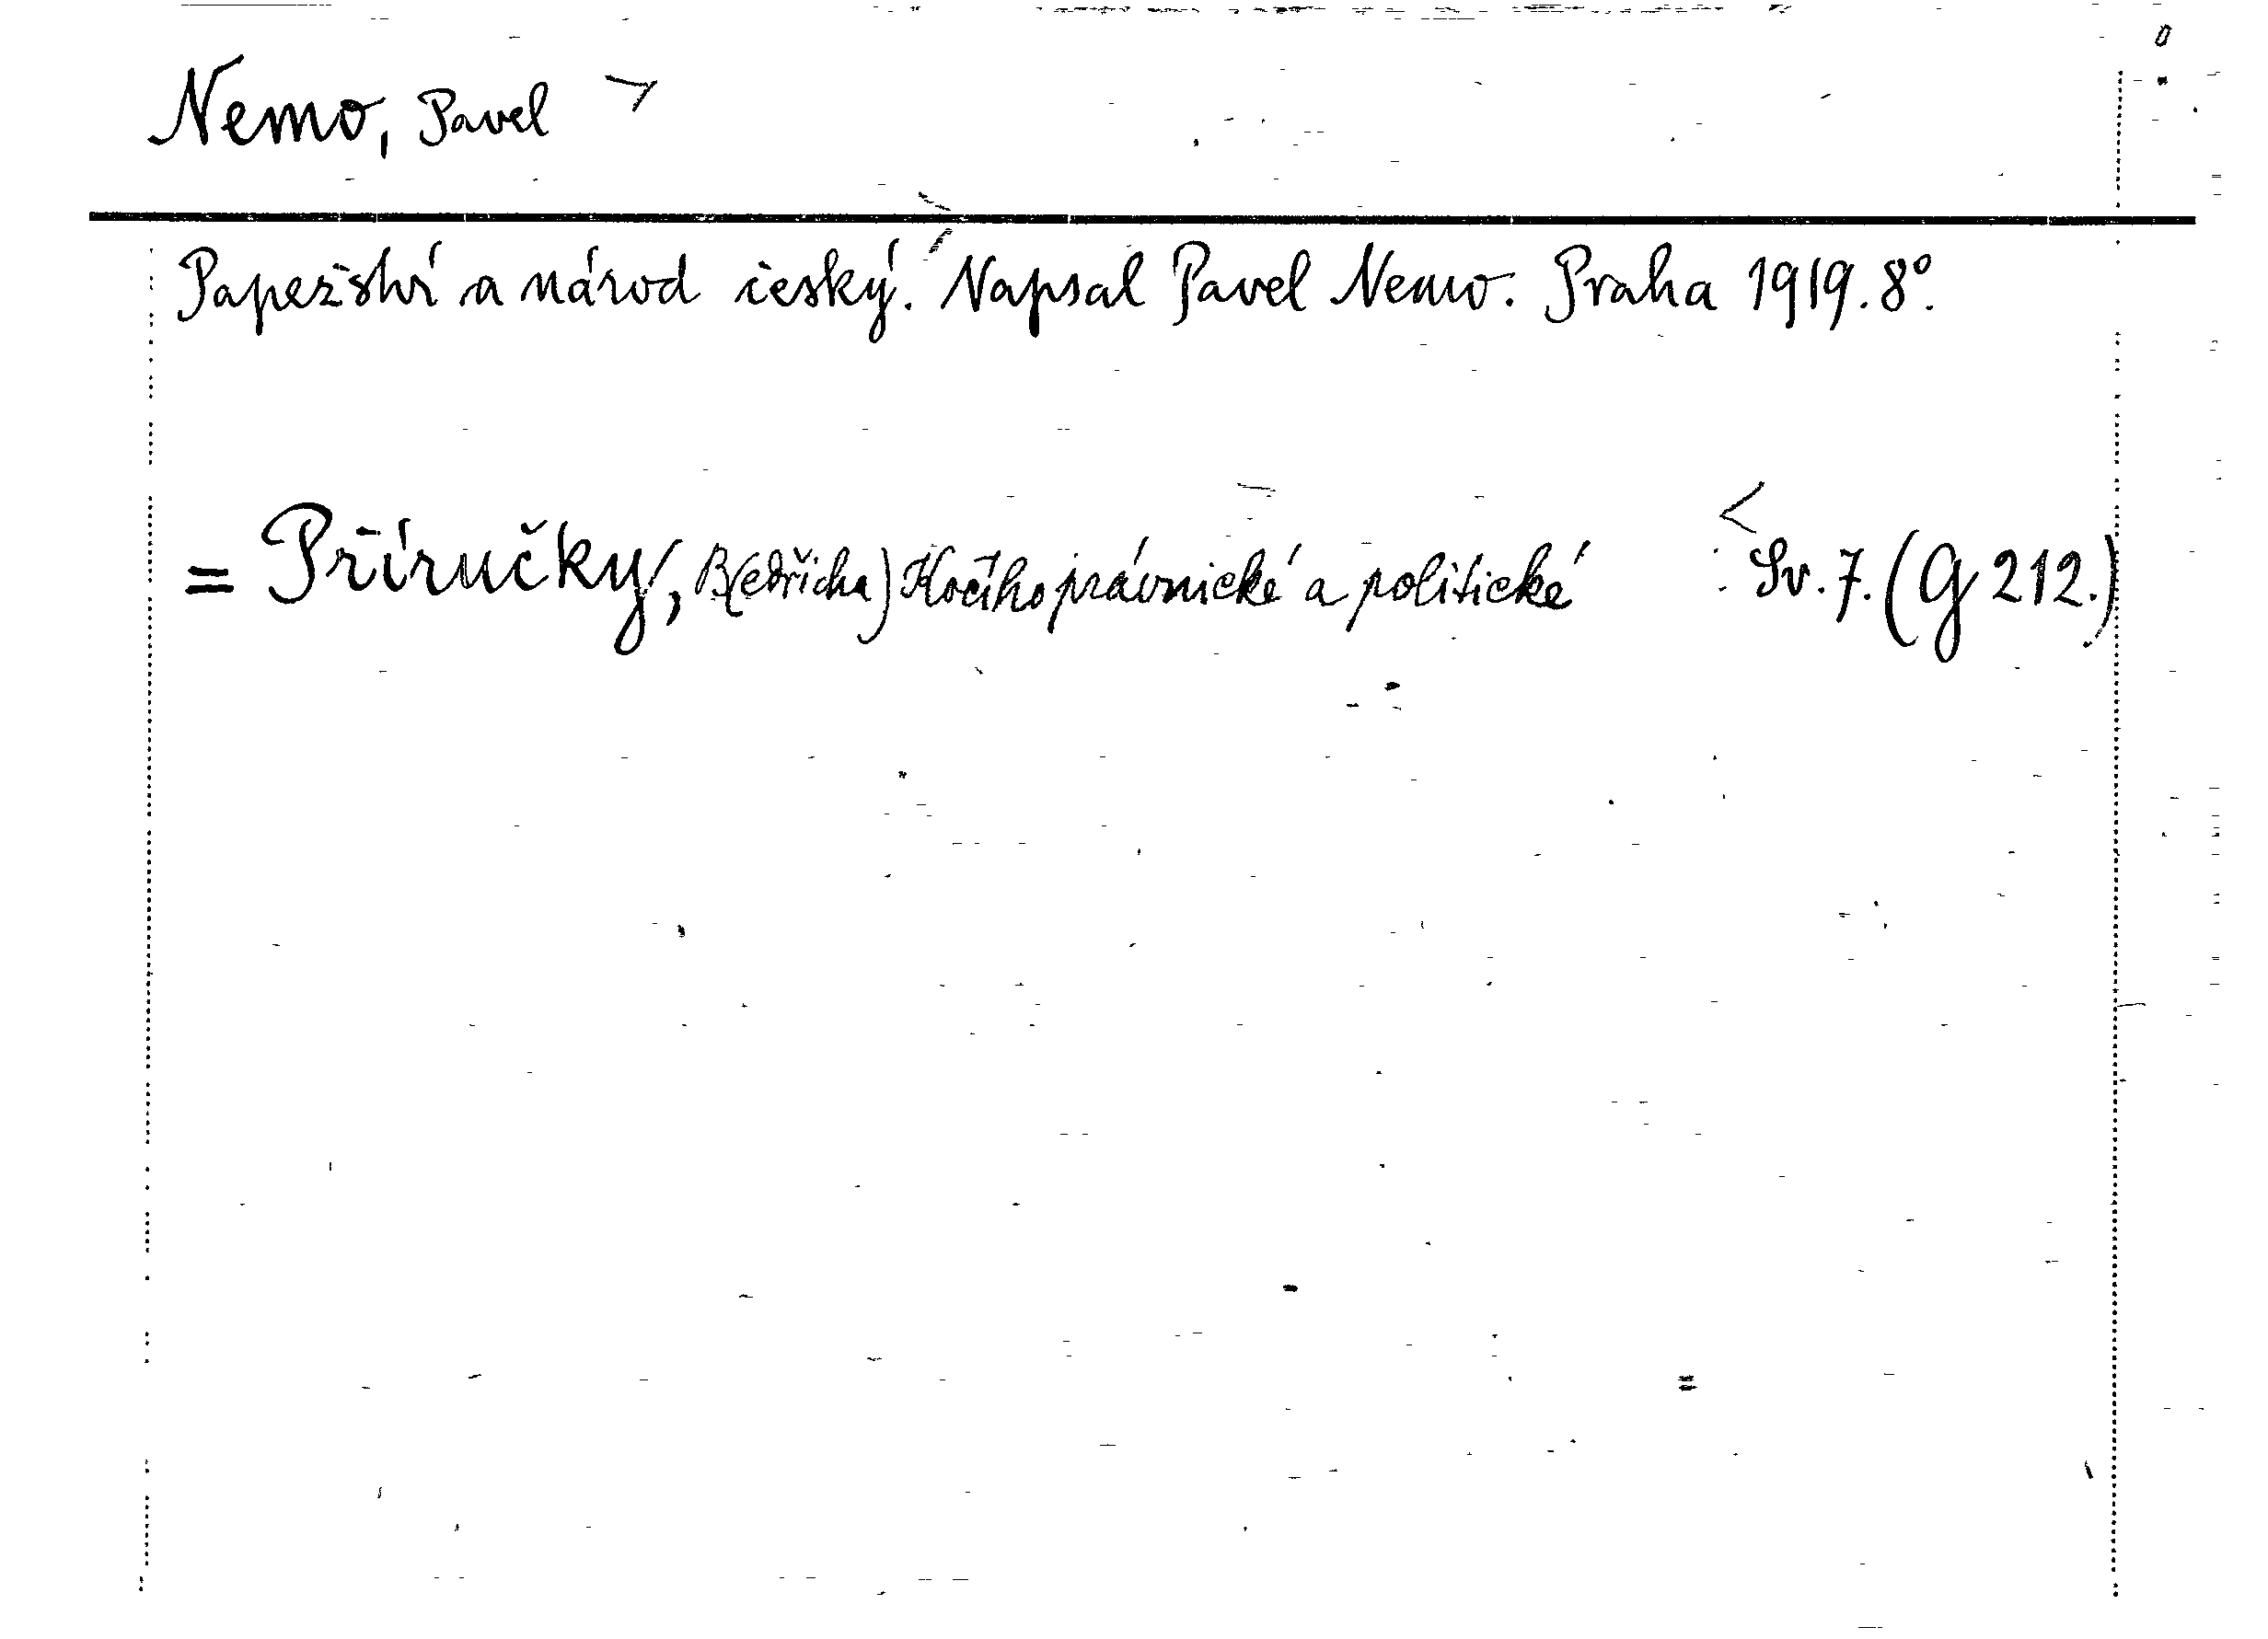 Nemo, Pavel
Papežství a národ český. Napsal Pavel Nemo. Praha 1919. 8°.
= Příručky, B(edřicha) Kočího právnické a politické : Sv. 7. (G 212.)